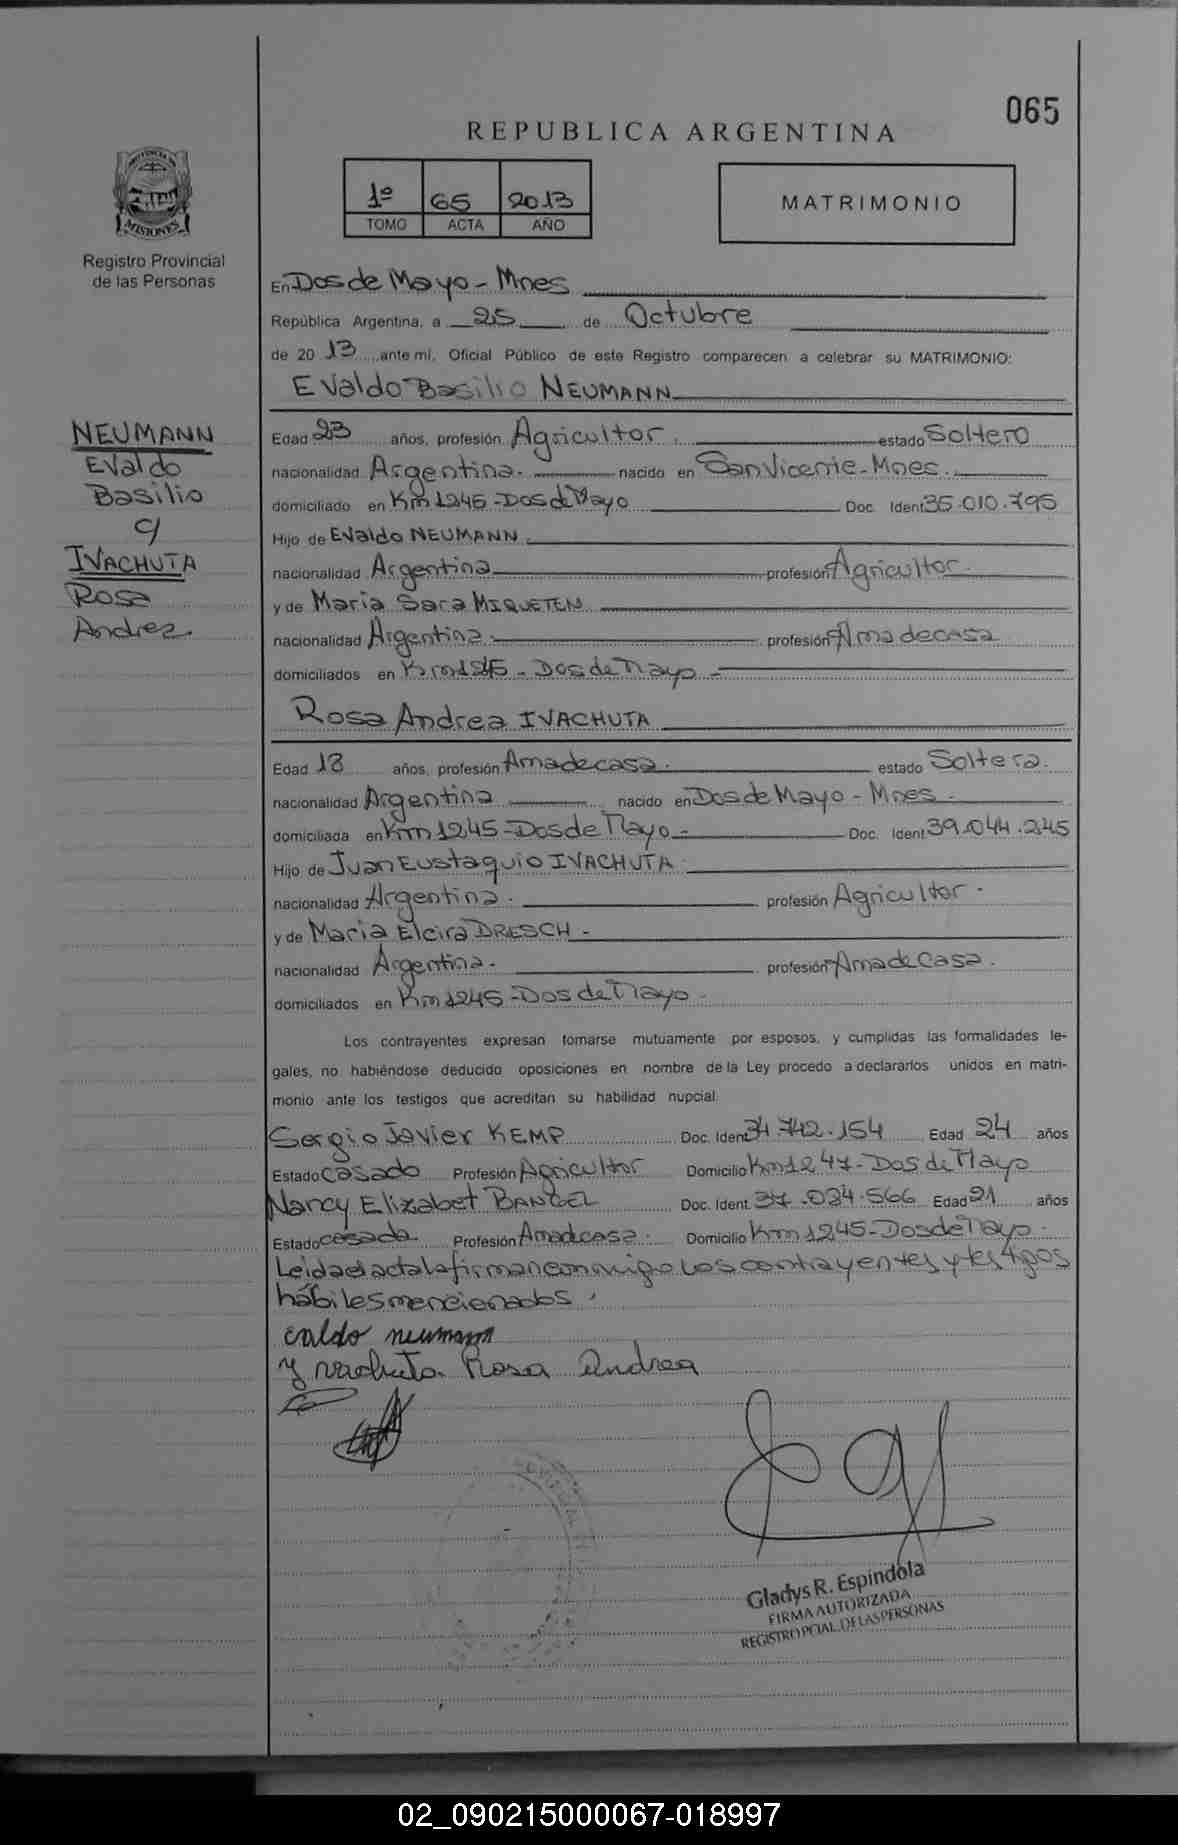 065
REPUBLICA ARGENTINA
1º 65 2013
TOMO ACTA AÑO
MATRIMONIO
PROVINCIA DE
MISIONES
Registro Provincial
de las Personas
En Dos de Mayo - Mnes
República Argentina, a 25 de Octubre
de 2013 ante mí, Oficial Público de este Registro comparecen a celebrar su MATRIMONIO:
Evaldo Basilio NEUMANN
NEUMANN
Evaldo
Basilio
c/
IVACHUTA
Rosa
Andrea
Edad 23 años, profesión Agricultor. estado Soltero
nacionalidad Argentina. nacido en San Vicente - Mnes.
domiciliado en Km 1245 - Dos de Mayo Doc. Ident 35.010.795
Hijo de Evaldo NEUMANN
nacionalidad Argentina profesión Agricultor.
y de Maria Sara MIQUETEN
nacionalidad Argentina. profesión Ama de casa
domiciliados en Km 1245 - Dos de Mayo -
Rosa Andrea IVACHUTA
Edad 18 años, profesión Ama de casa. estado Soltera.
nacionalidad Argentina nacido en Dos de Mayo - Mnes.
domiciliada en Km 1245 - Dos de Mayo - Doc. Ident 39.044.245
Hijo de Juan Eustaquio IVACHUTA
nacionalidad Argentina. profesión Agricultor.
y de Maria Elcira DRESCH -
nacionalidad Argentina. profesión Ama de Casa.
domiciliados en Km 1245 - Dos de Mayo -
Los contrayentes expresan tomarse mutuamente por esposos, y cumplidas las formalidades le-
gales, no habiéndose deducido oposiciones en nombre de la Ley procedo a declararlos unidos en matri-
monio ante los testigos que acreditan su habilidad nupcial.
Sergio Javier KEMP Doc. Ident 34.742.154 Edad 24 años
Estado casado Profesión Agricultor Domicilio Km 1247 - Dos de Mayo
Nancy Elizabet Doc. Ident. 37.034.566 Edad 21 años
Estado casada Profesión Ama de casa. Domicilio Km 1245 - Dos de Mayo.
Leida el acta la firman conmigo los contrayentes y testigos
hábiles mencionados.
evaldo neumann
yvachuta Rosa Andrea
Gladys R. Espindola
FIRMA AUTORIZADA
REGISTRO PCIAL. DE LAS PERSONAS
02_090215000067-018997